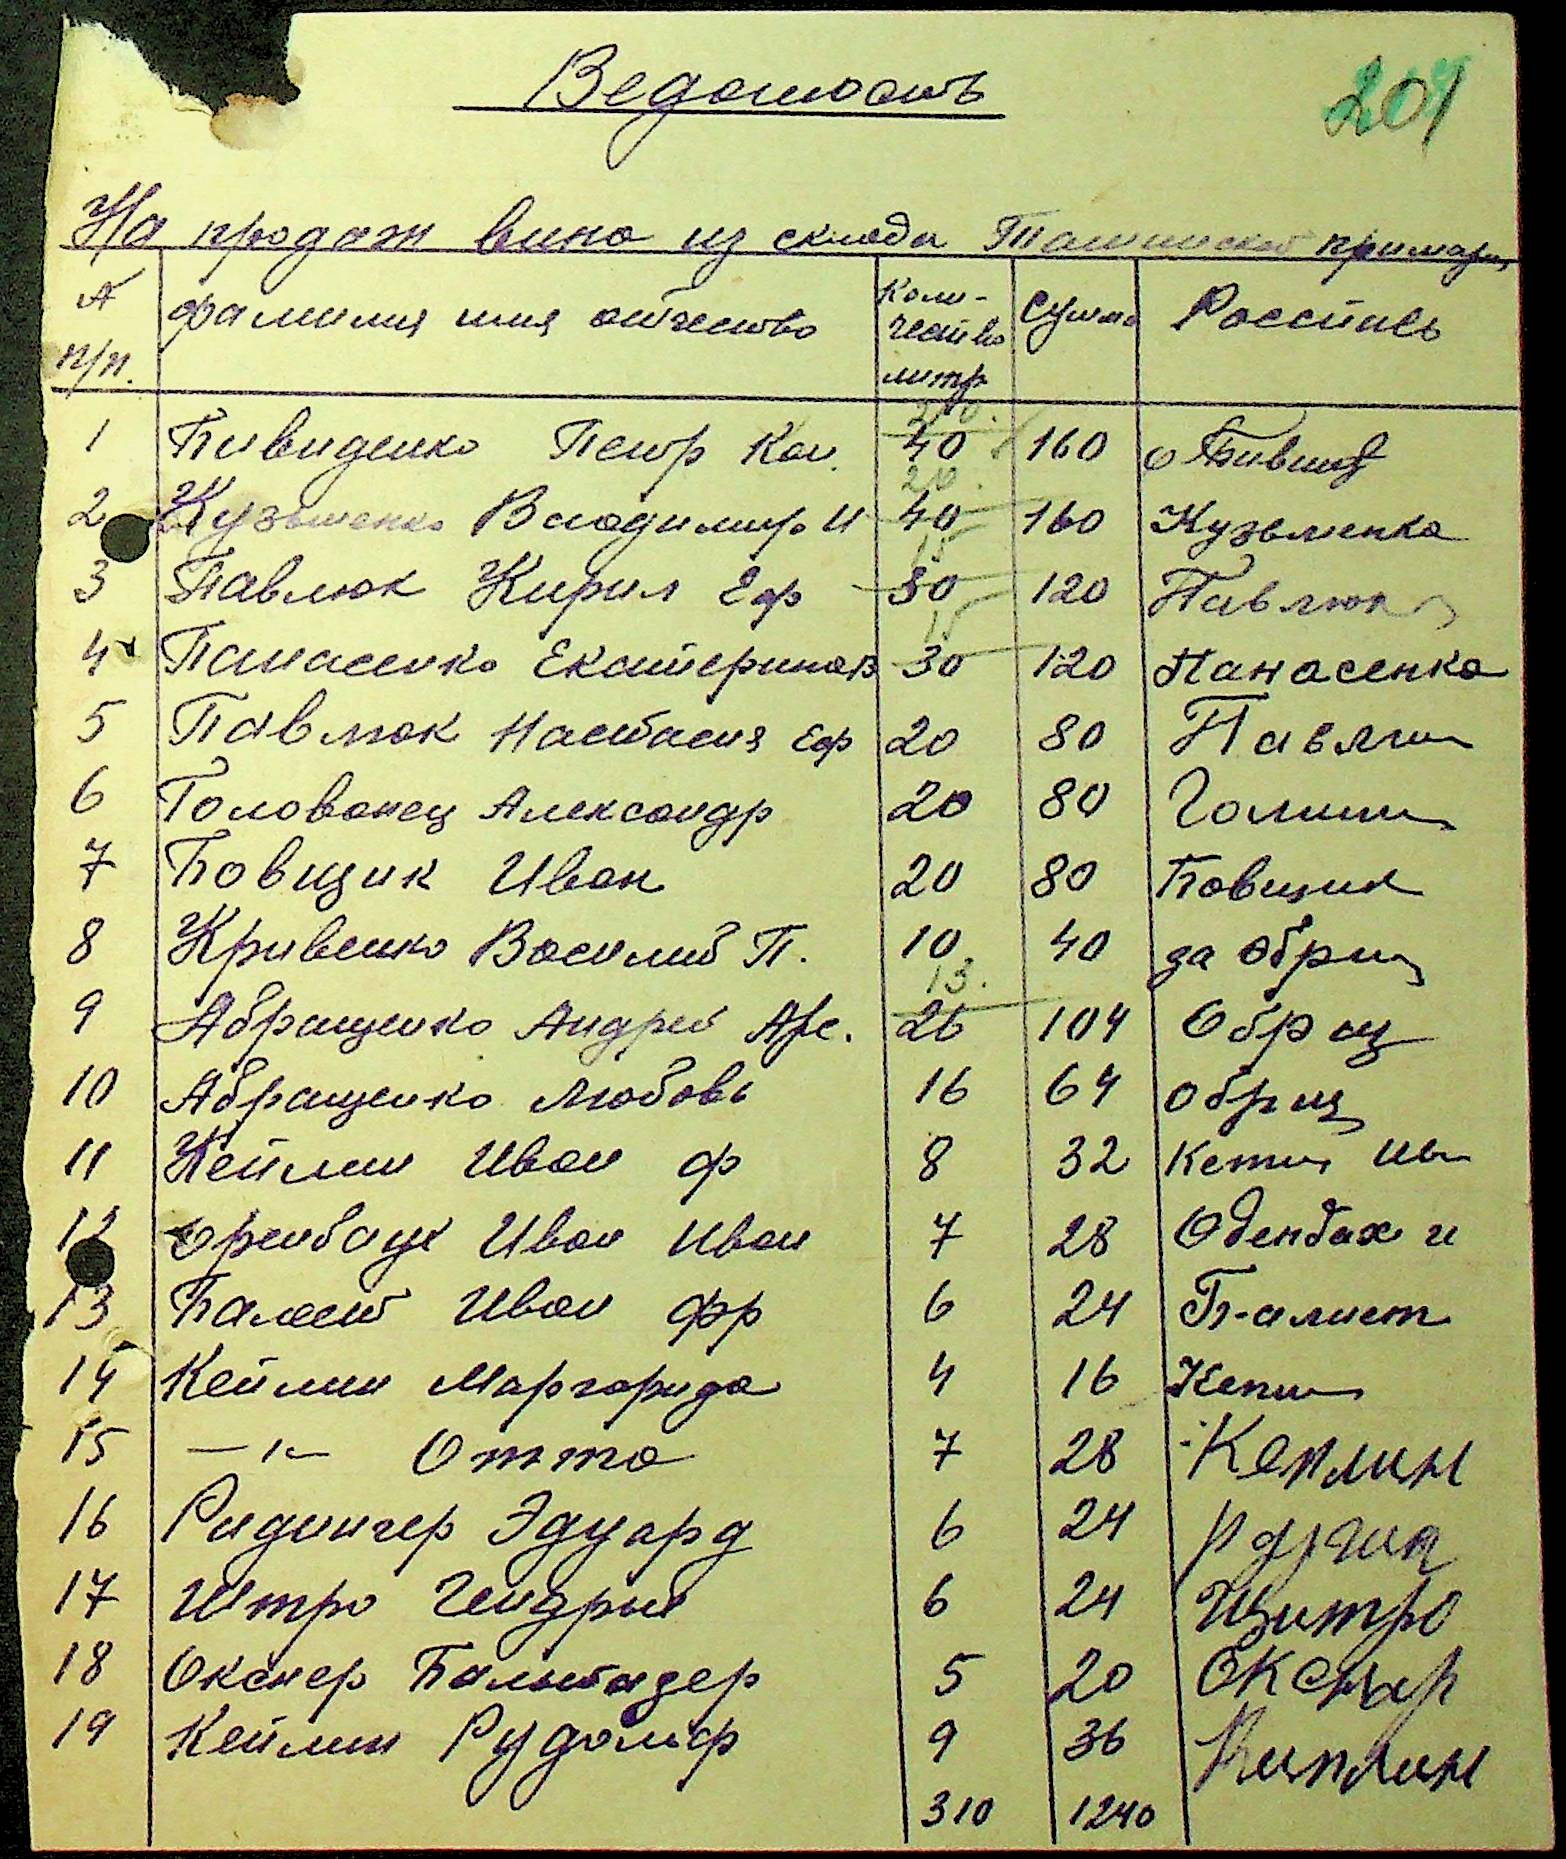 Ведомость
207
На продаж вина из склада Ташинской примарии
№ п/п. фамилия имя отчество Коли- чество литр Сумма Роспись
1 Пивиденко Петр Кон. 20. 40 160
2 Кузьменко Володимир И 20. 40 160 Кузьменко
3 Павлюк Кирил Еф 15 30 120 Павлюк
4 Панасенко Екатерина В 15 30 120 Панасенко
5 Павлюк Настасия Еф 20 80 Павлюк
6 Голованец Александр 20 80
7 Бовщик Иван 20 80 Бовщик
8 Кривенко Василий П. 10 40 за
9 Абращенко Андрей Арс. 13. 26 104 Обращ
10 Абращенко Любовь 16 64 Обращ
11 Кейлин Иван Ф 8 32
12 Оренбаух Иван Иван 7 28 Оденбах И
13 Балест Иван Фр 6 24 Балист
14 Кейлин Маргарида 4 16
15 —"— Отто 7 28 Кеплин
16 Ридингер Эдуард 6 24
17 Штро Гендрих 6 24 Штро
18 Окснер Бальтазер 5 20 Окснар
19 Кейлин Рудольф 9 36 Киплин
310 1240